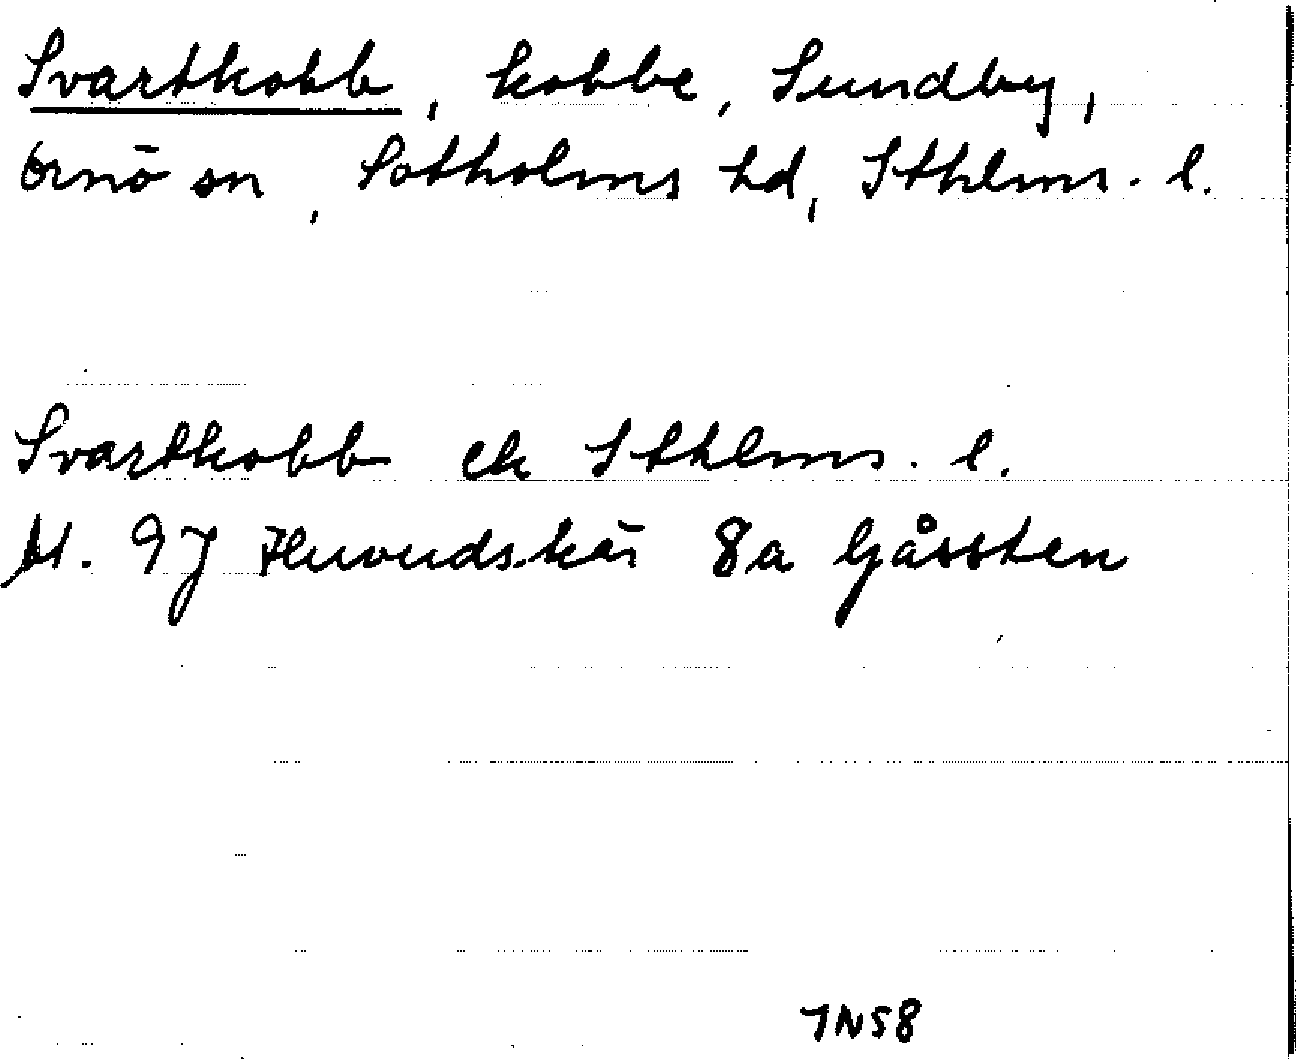 Svartkobb, kobbe, Sundby,
Ornö sn, Sotholms hd, Sthlms. l.
Svartkobb ek Sthlms. l.
Bl. 9J Huvudskär 8a Gåssten
JN58